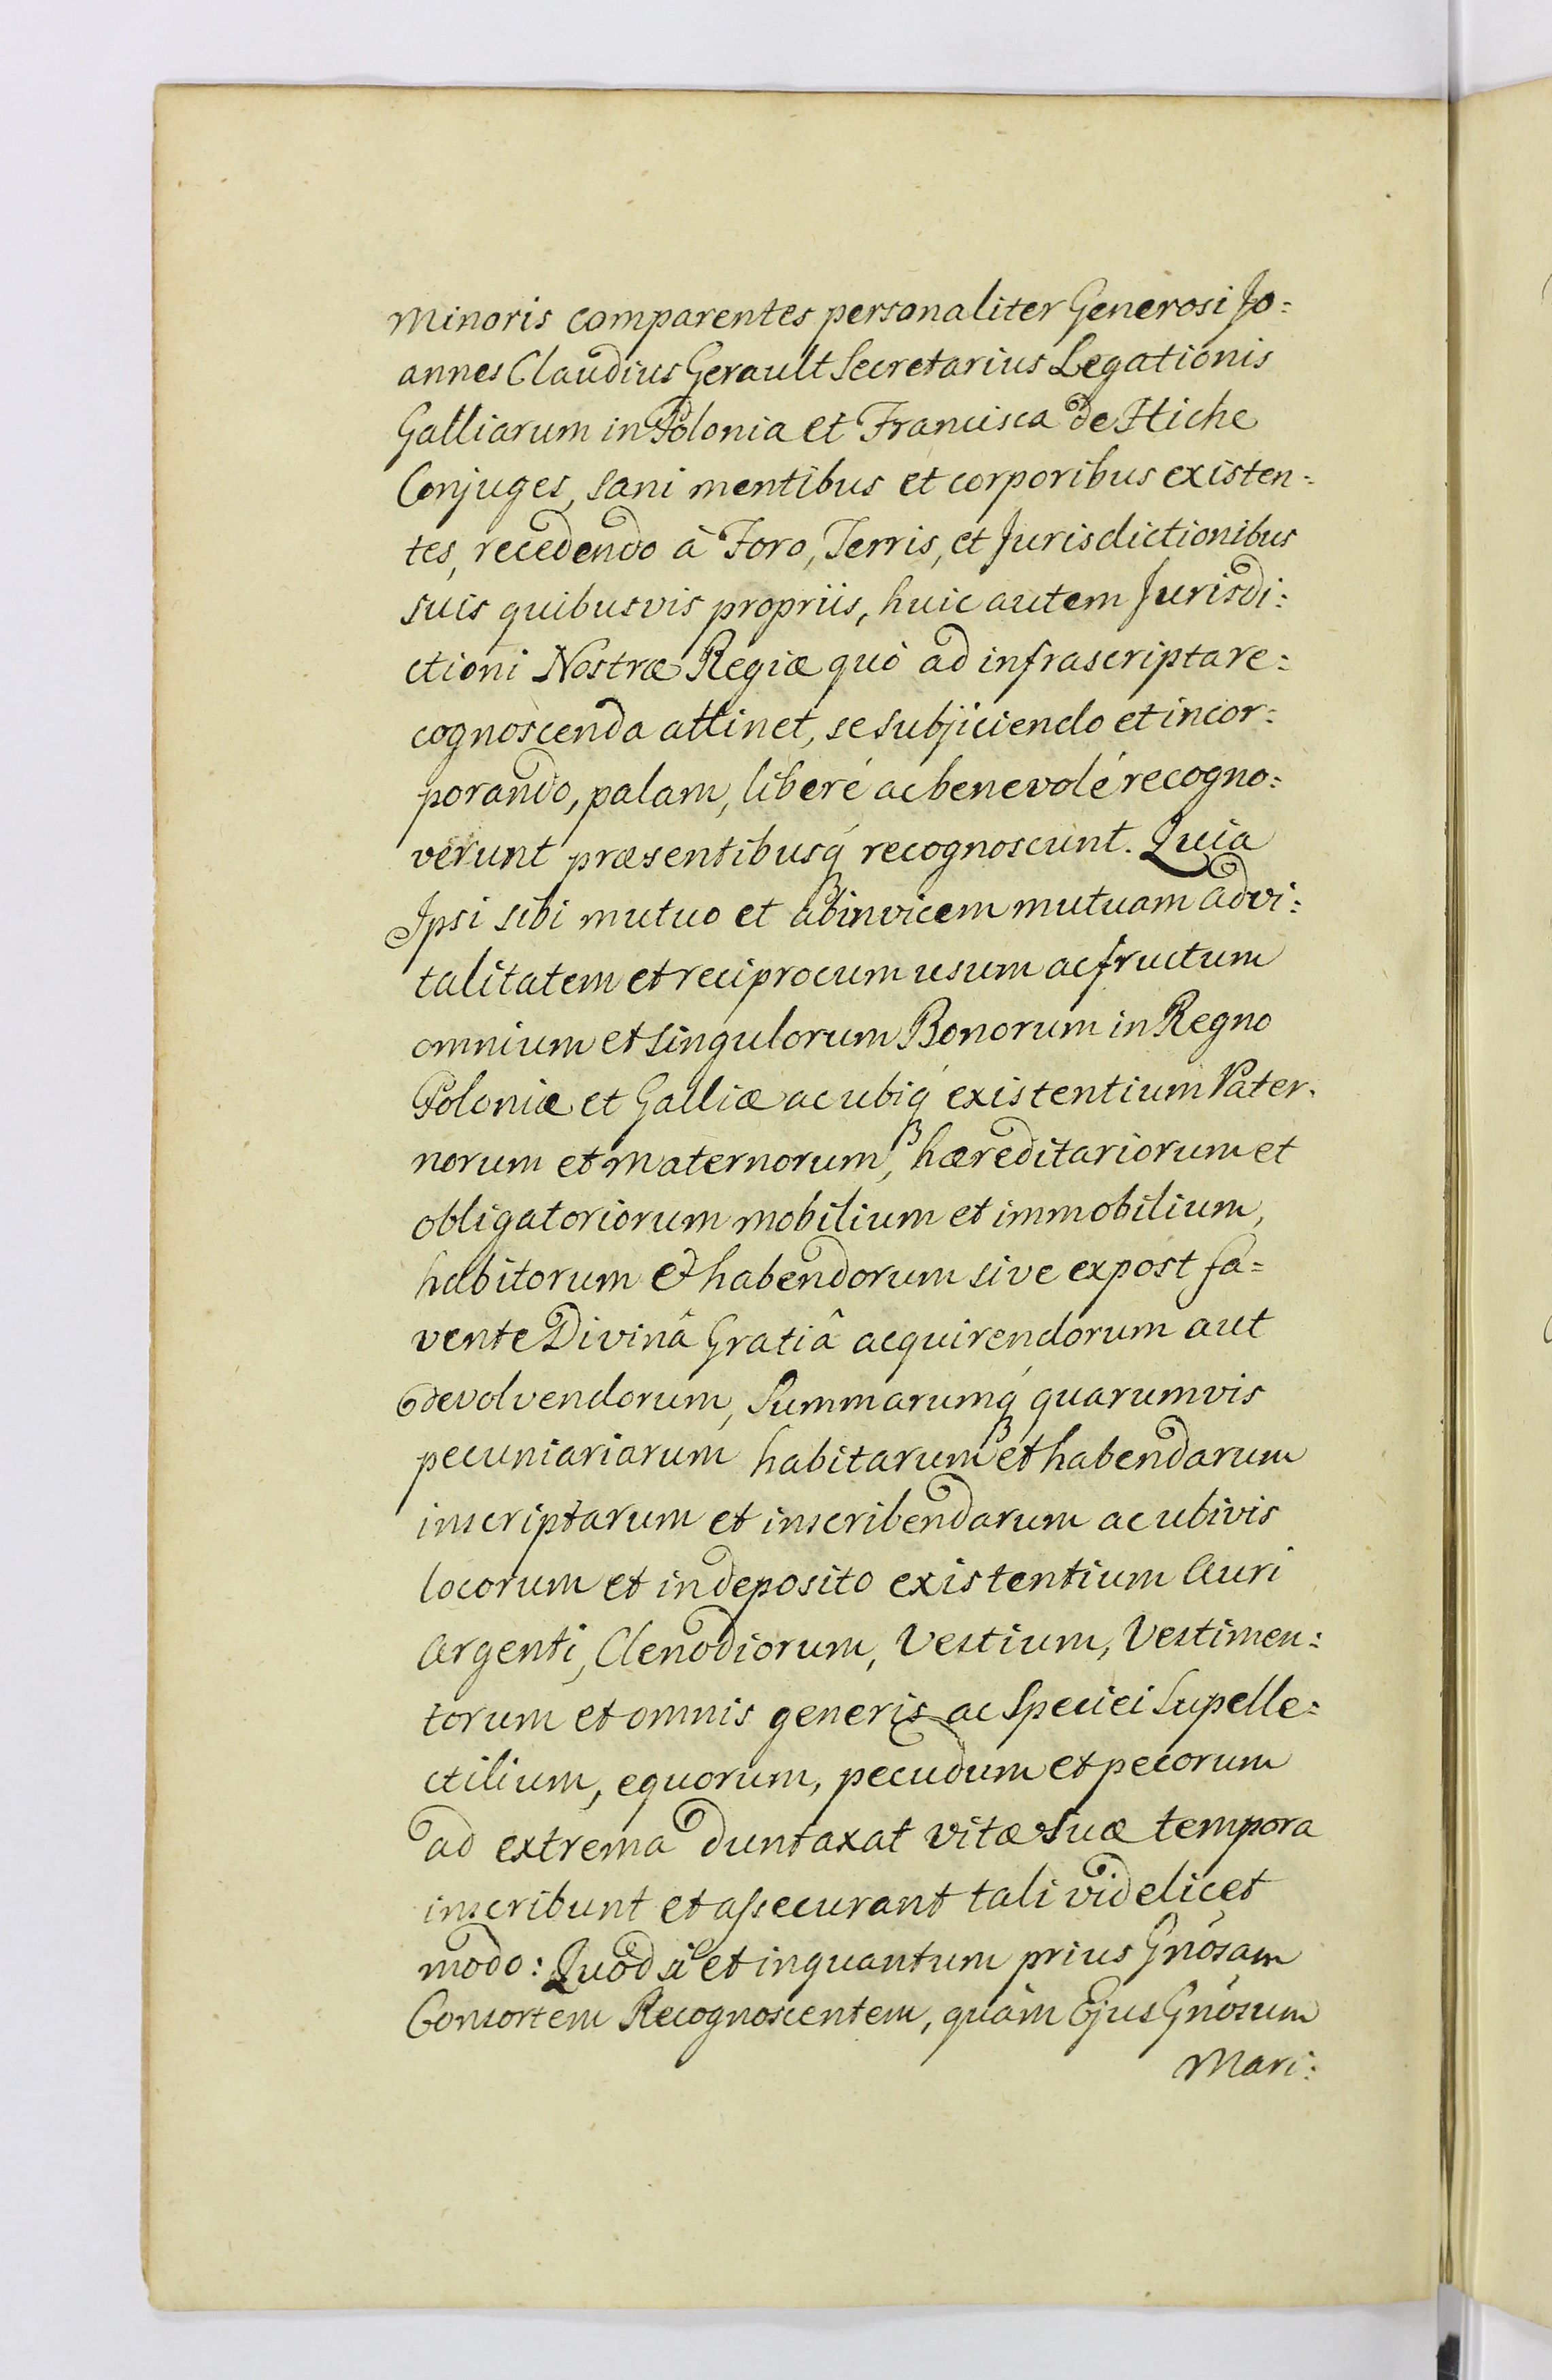 Minoris comparentes personaliter Generosi Jo=
annes Claudius Gerault Secretarius Legationis
Galliarum in Polonia et Francisca de Hiche
Conjuges, sani mentibus et corporibus existen=
tes, recedendo à Foro, Terris, et Jurisdictionibus
suis quibusvis propriis, huic autem Jurisdi:
ctioni Nostræ Regiæ quò ad infrascripta re=
cognoscenda attinet, se subjiciendo et incor=
porando, palam, liberé ac benevolé recogno=
verunt præsentibusq́ recognoscunt. Quia
Ipsi sibi mutuo et ab invicem mutuam advi:
talitatem et reciprocum usum ac fructum
omnium et singulorum Bonorum in Regno
Poloniæ et Galliæ ac ubiq́ existentium Pater.
norum et Maternorum, hæreditariorum et
obligatoriorum mobilium et immobilium,
habitorum & habendorum sive expost fa=
vente Divinâ Gratiâ acquirendorum aut
devolvendorum, Summarumq́ quarumvis
pecuniariarum habitarum et habendarum
inscriptarum et inscribendarum ac ubivis
locorum et in deposito existentium Auri
Argenti, Clenodiorum, Vestium, Vestimen:
torum et omnis generis ac Speciei Supelle=
ctilium, equorum, pecudum et pecorum
ad extrema duntaxat vitæ suæ tempora
inscribunt et assecurant tali videlicet
modo: Quod si et inquantum prius Gnõsam
Consortem Recognoscentem, quàm Ejus Gnõsum
Mari: